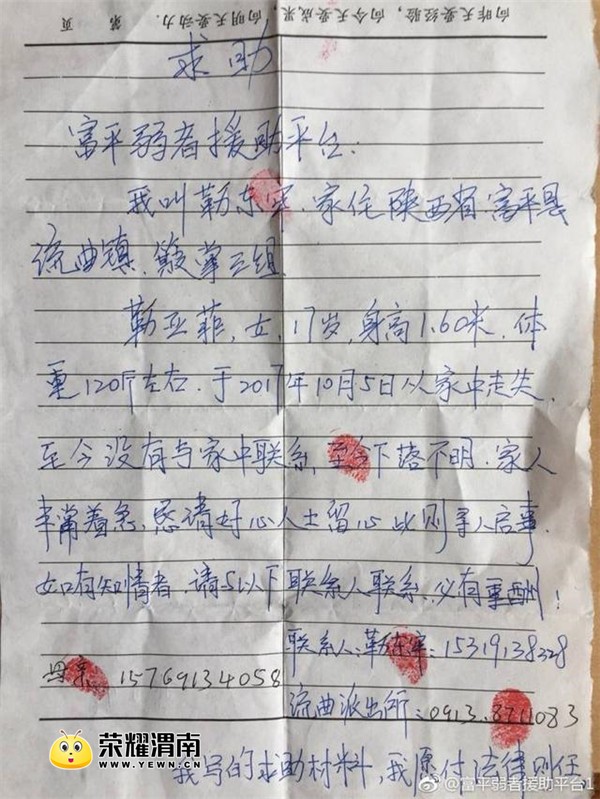 向昨天要经验,向今天要成果,向明天要动力. 第 页
求助
富平弱者援助平台:
我叫勒东军.家住陕西省.富平县
流曲镇.三组
勒亚菲,女,17岁,身高1.60米.体
重120斤左右.于2017年10月5日从家中走失.
至今没有与家中联系,至今下落不明.家人
非常着急,恳请好心人士留心此则寻人启事.
如有知情者.请与以下联系人联系,必有重酬!
联系人:勒东军:15319138328
母亲 15769134058
流曲派出所:0913.8711083
我写的求助材料,我愿付法律则任
荣耀渭南
WWW.YEWN.CN
@富平弱者援助平台1